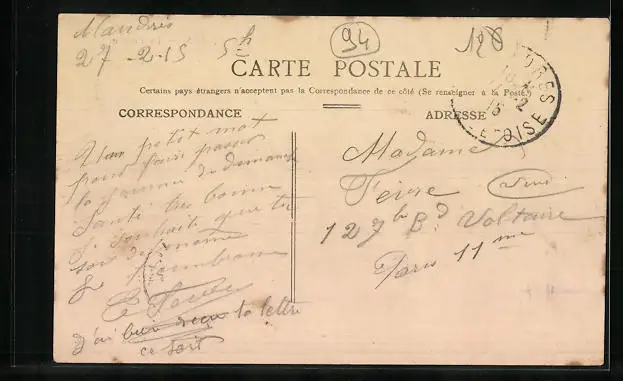 Mandres
27-2-15 5h
94
128
CARTE POSTALE
Certains pays étrangers n'acceptent pas la Correspondance de ce côté (Se renseigner à la Poste.)
CORRESPONDANCE
ADRESSE
OISE
Un petit mot
pour faire passer
la journée du dimanche
Santé très bonne
Je souhaite que tu
sois de même
Madame
Feivre
127 b Bd Voltaire
Paris 11me
J'ai bien reçu ta lettre
ce soir